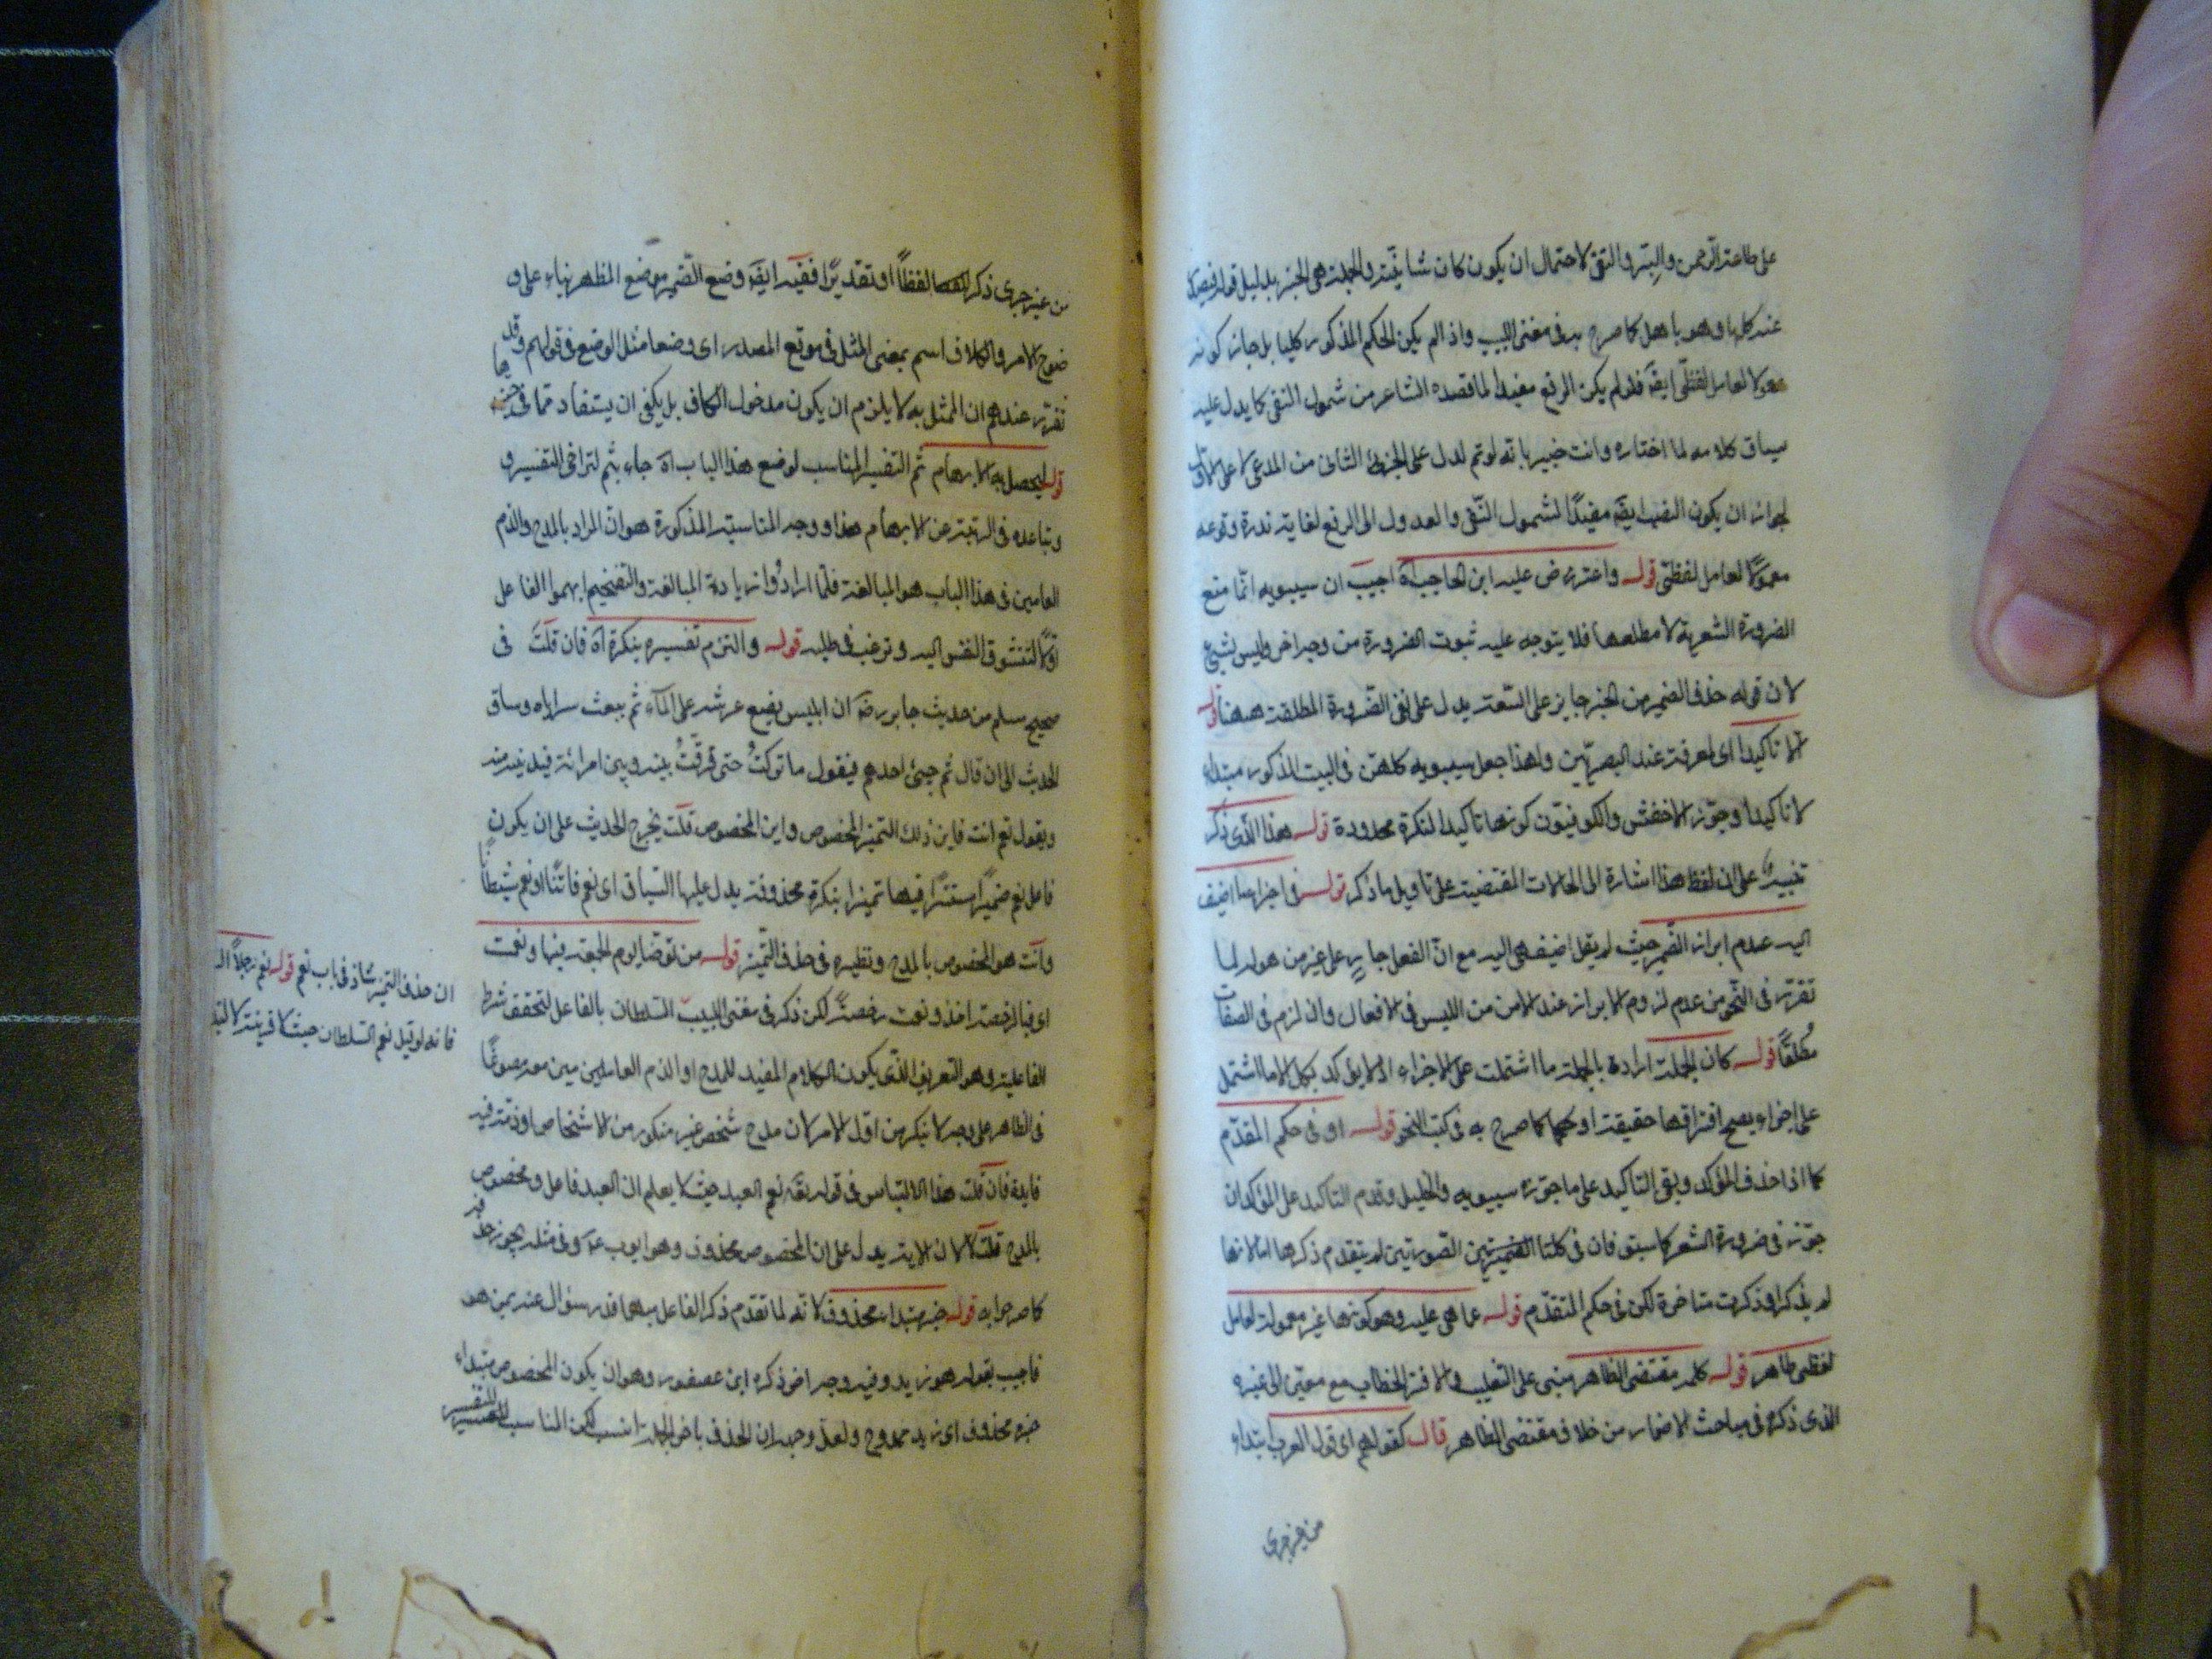 على طاعة الرحمن والبر والتقى لاحتمال ان يكون كان شانية والجملة هى الخبر بدليل قوله فيصدر
عنه كلها وهو ياهل كما صرح به فى مغنى اللبيب واذا لم يكن الحكم المذكور كليا بل جاز كونه
معمولا لعامل لفظى ايضه فلو لم يكن الرفع مفيدا لما قصده الشاعر من شمول النفى كما يدل عليه
سياق كلامه لما اختاره وانت خبير بانه لو تم لدل على الجزء الثانى من المدعى لا على الاول
لجواز ان يكون النصب ايضه مفيدًا لشمول النّفى والعدول الى الرفع لغاية ندرة وقوعه
معمولًا لعامل لفظى قوله واعترض عليه ابن الحاجب اه اجيب ان سيبويه انّما منع
الضرورة الشعرية لا مطلعها فلا يتوجه عليه ثبوت الضرورة من وجه اخر وليس بشيئ
لان قوله حذف الضمير من الخبر جايز على السّعة يدل على نفى الضّرورة المطلقة ههنا قوله
الا تاكيدا اى لمعرفة عند البصريّين ولهذا جعل سيبويه كلهنّ فى البيت المذكور مبتداء
لا تاكيدا وجوّز الاخفش والكوفيّون كونها تاكيدا لنكرة محدودة قوله هذا الذى ذكر
تنبيه على ان لفظ هذا اشارة الى الحالات المقتضية على تاويل ما ذكر قوله فى اجزاءها اضيف
اليه عدم ابراز الضّمير حيث لم يقل اضيف هى اليه مع انّ الفعل جارٍ على غير من هو له لما
تقرّر فى النّحو من عدم لزوم الابراز عند الامن من اللبس فى الافعال وان لزم فى الصفات
مُطلقًا قوله كان الجملة ارادة بالجملة ما اشتملت على الاجزاء اذ لا يؤكد بكل الا ما اشتمل
على اجزاء يصح افتراقها حقيقة او حكما كما صرح به فى كتب النحو قوله او فى حكم المقدّم
كما اذا حذف المؤكد وبقى التاكيد على ما جوّزه سيبويه والخليل وقدم التاكيد على المؤكد وان
جوّز فى ضرورة الشعر كما سبق فان فى كلتا الضميرتين الصّورتين لم يتقدم ذكرها اما لانها
لم يذكر او ذكرت متاخرة لكن فى حكم المتقدّم قوله عما هى عليه وهو كونها غير معمولة لعامل
لفظى ظاهر قوله كلمه مقتضى الظاهر مبنى على التغليب والا فترك الخطاب مع معيّن الى غيره
الذى ذكره فى مباحث الاضمار من خلاف مقتضى الظاهر قال كقولهم اى قول العرب ابتداء
من غير جرى
من غير جرى ذكر لفظًا او تقديرًا ففيه ايضه وضع الضّمير موضع المظهر بناء على و
ضوح الامر والكاف اسم بمعنى المثل فى موقع المصدر اى وضعا مثل الوضع فى قولهم وقد
تقرّر عندهم ان الممثل به لا يلزم ان يكون مدخول الكاف بل يكفى ان يستفاد مما فى حيزها
قوله ليحصل به الابهام ثم التفسير المناسب لوضع هذا الباب اه جاء بثم لتراخى التفسير و
وتباعده فى الرتبة عن الابهام هذا ووجه المناسبة المذكورة هو ان المراد بالمدح والذم
العامين فى هذا الباب هو المبالغة فلمّا ارادُوا زيادة المبالغة والتفخيم ابهموا الفاعل
اوّلا لتشوق النفس اليه وترغب فى طلبه قوله والتزم تفسيره بنكرة اه فان قلت فى
صحيح مسلم من حديث جابر رضه ان ابليس يضع عرشه على الماء ثم يبعث سراياه وساق
الحديث الى ان قال ثم يجئ احدهم فيقول ما تركتُ حتى فرّقتُ بينه وبين امرأته فيدنيه منه
ويقول نعم انت فاين ذلك التميز المخصوص واين المخصوص قلت يخرج الحديث على ان يكون
فاعل نعم ضميرًا مستترًا فيها تميزا بنكرة محذوفة يدل عليها السّياق اى نعم فاتنًا او نعم شيطانًا
وانت هو المخصوص بالمدح ونظيره فى حذف التّميز قوله من توضّأ يوم الجمعة فبها ونعمت
اى فبالرخصة اخذ ونعمت رخصةً لكن ذكر فى مغنى اللبيب السّلطان بالفاعل لتحقق شرط
ان حذف التميز شاذ فى باب نعم قوله نعم رجلًا
فانه لو قيل نعم السّلطان حيث لا قرينة
الفاعلية وهو التعريف الّذى يكون الكلام المفيد للمدح او الذم العامين معه مصوغًا
فى الظاهر على وجه لا ينكر من اوّل الامر لان مدح شخص غير منكور من الاشخاص او ذمّه فيه
فايدة فان قلت هذا الالتباس فى قوله تعه نعم العبد حيث لا يعلم ان العبد فاعل ومخصوص
بالمدح قلت لا لان الاية يدل على ان المخصوص محذوف وهو ايوب عم وفى مثله يجوز حذفه
كما صرحوا به قوله خبر مبتداء محذوف لانه لما تقدم ذكر الفاعل مبهما قدر سؤال عنه بمن هو
فاجيب بقوله هو زيد وفيه وجه اخر ذكره ابن عصفور وهو ان يكون المخصوص مبتداء
خبره محذوف اى زيد ممدوح ولعل وجه ان الحذف باخر الجملة انسب لكن المناسب للتفسير